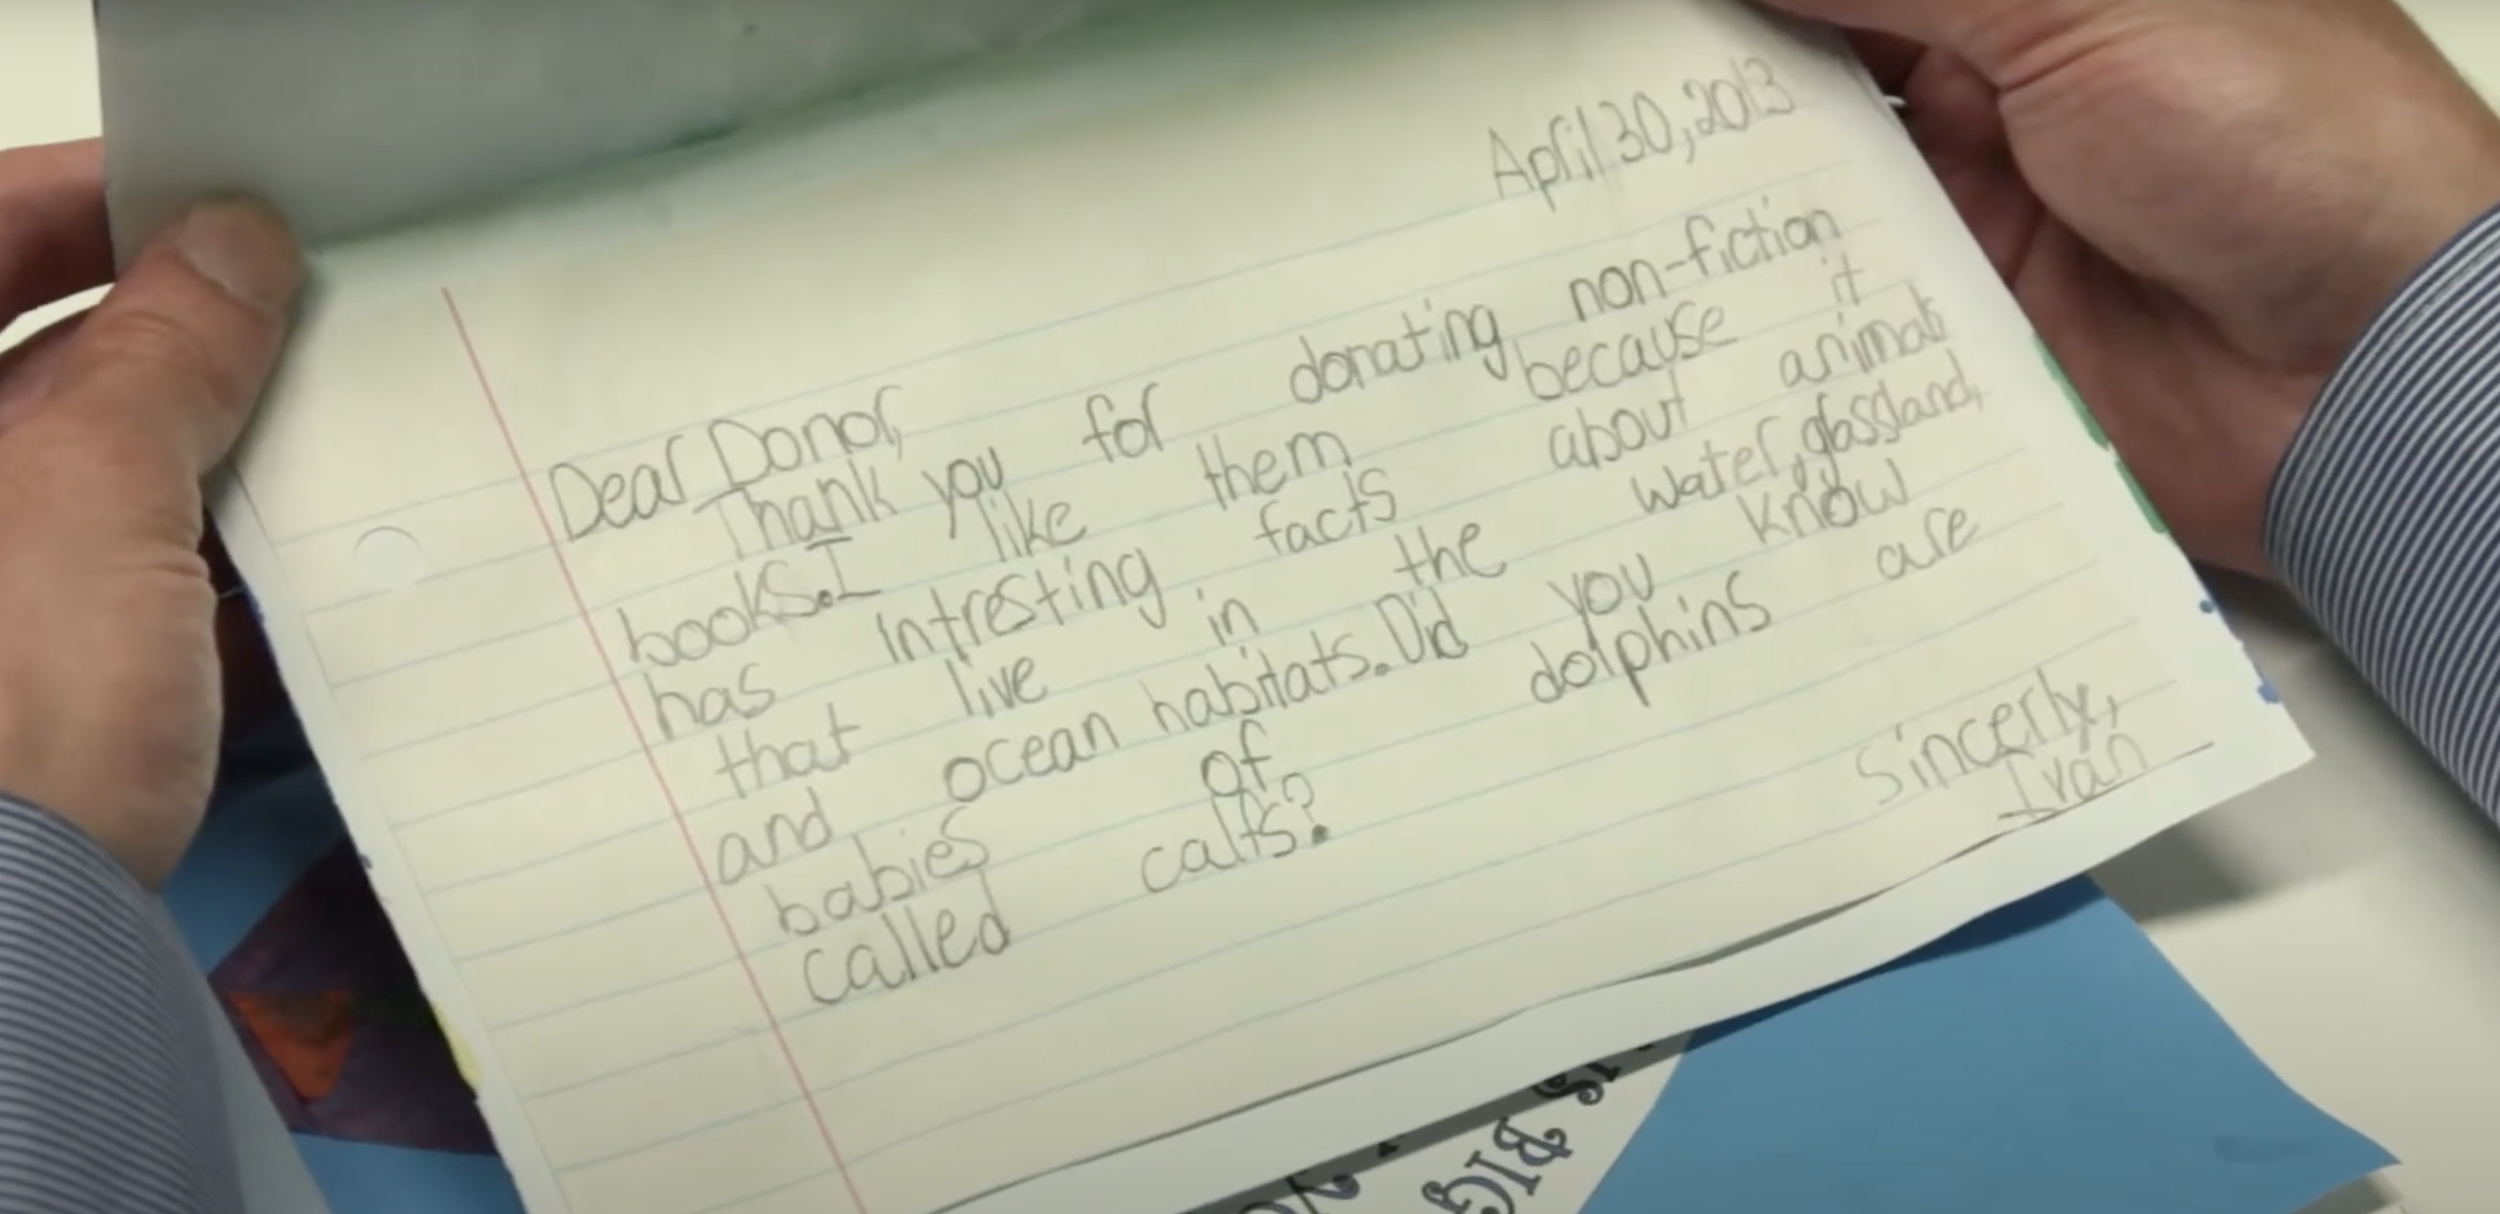 April 30, 2013
Dear Donor,
Thank you for donating non-fiction
books. I like them because it
has intresting facts about animals
that live in the water, glassland,
and ocean habitats. Did you know
babies of dolphins are
called calfs?
Sincerly,
Ivan
& BIG